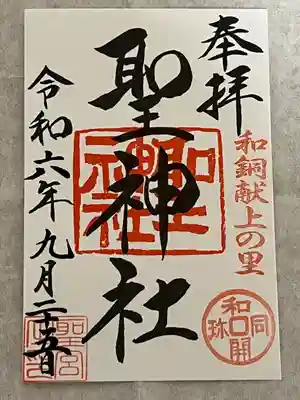 奉拝
和銅献上の里
聖神社
令和六年九月二十五日
和同開珎
聖神社